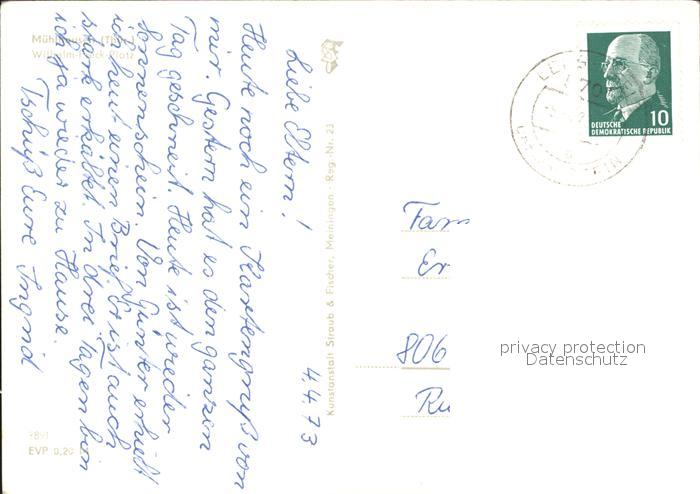 Mühlhausen (Thür.)
Wilhelm-Pieck-Platz
Liebe Eltern!
Heute noch ein Kartengruß von
mir. Gestern hat es den ganzen
Tag geschneit. Heute ist wieder
Sonnenschein. Von Günter erhielt
ich heut einen Brief. Er ist auch
stark erkältet. In drei Tagen bin
ich ja wieder zu Hause.
Tschüß Eure Ingrid
4.4.73
EVP 0,20 M
Kunstanstalt Straub & Fischer, Meiningen · Reg.-Nr. 23
DEUTSCHE
DEMOKRATISCHE REPUBLIK
10
Fam
Er
806
privacy protection
Datenschutz